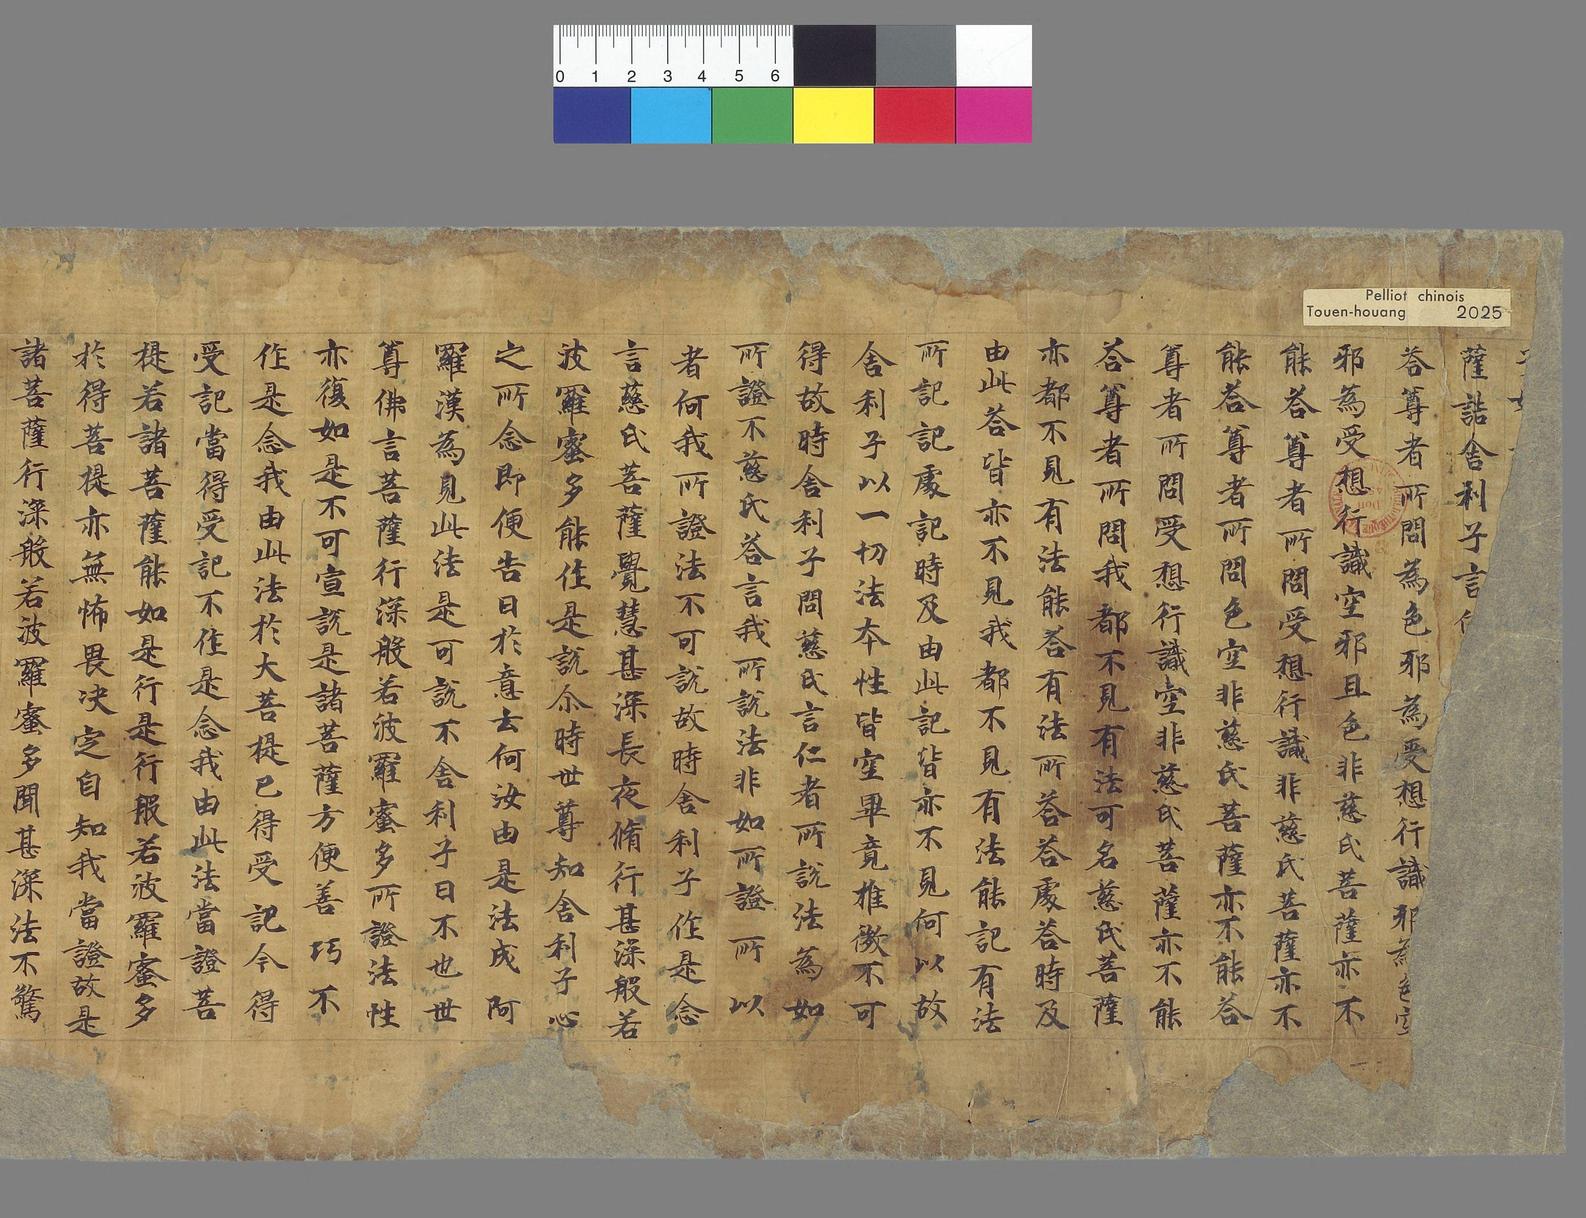 0 1 2 3 4 5 6
Pelliot chinois
Touen-houang 2025
薩詰舍利子言
荅尊者所問為色邪為受想行識邪為色空
邪為受想行識空邪且色非慈氏菩薩亦不
能荅尊者所問受想行識非慈氏菩薩亦不
能荅尊者所問色空非慈氏菩薩亦不能荅
尊者所問受想行識空非慈氏菩薩亦不能
荅尊者所問我都不見有法可名慈氏菩薩
亦都不見有法能荅有法所荅荅處荅時及
由此荅皆亦不見我都不見有法能記有法
所記記處記時及由此記皆亦不見何以故
舍利子以一切法本性皆空畢竟推徵不可
得故時舍利子問慈氏言仁者所說法為如
所證不慈氏荅言我所說法非如所證所以
者何我所證法不可說故時舍利子作是念
言慈氏菩薩覺慧甚深長夜脩行甚深般若
波羅蜜多能作是說尒時世尊知舍利子心
之所念即便告曰於意云何汝由是法成阿
羅漢為見此法是可說不舍利子曰不也世
尊佛言菩薩行深般若波羅蜜多所證法性
亦復如是不可宣說是諸菩薩方便善巧不
作是念我由此法於大菩提已得受記今得
受記當得受記不作是念我由此法當證菩
提若諸菩薩能如是行是行般若波羅蜜多
於得菩提亦無怖畏決定自知我當證故是
諸菩薩行深般若波羅蜜多聞甚深法不驚